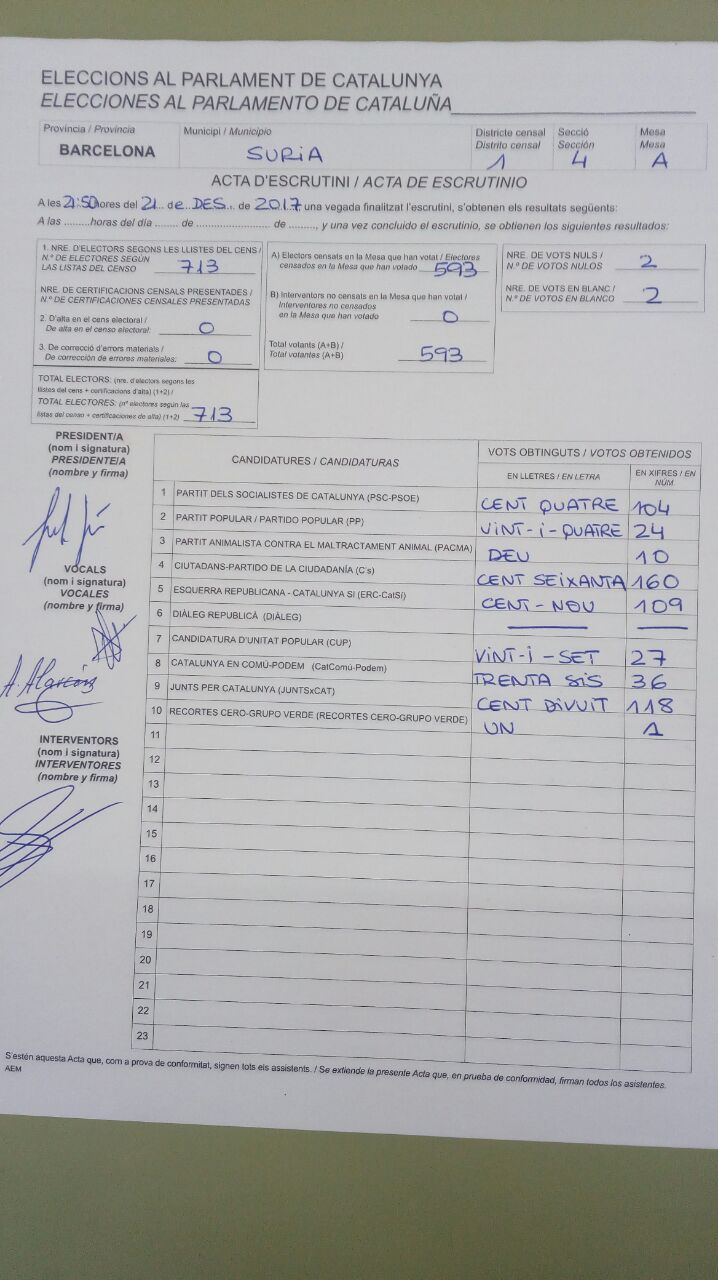 ELECCIONS AL PARLAMENT DE CATALUNYA
ELECCIONES AL PARLAMENTO DE CATALUÑA
Provincia / Provincia
BARCELONA
Municipi / Municipio
SURIA
Districte censal
Distrito censal
1
Secció
Sección
4
Mesa
Mesa
A
ACTA D'ESCRUTINI / ACTA DE ESCRUTINIO
A les 21:50 hores del 21 de DES. de 2017, una vegada finalitzat l'escrutini, s'obtenen els resultats següents:
A las .........horas del día ....... de .................... de ........., y una vez concluido el escrutinio, se obtienen los siguientes resultados:
1. NRE. D'ELECTORS SEGONS LES LLISTES DEL CENS /
N.º DE ELECTORES SEGÚN
LAS LISTAS DEL CENSO 713
NRE. DE CERTIFICACIONS CENSALS PRESENTADES /
N.º DE CERTIFICACIONES CENSALES PRESENTADAS
2. D'alta en el cens electoral /
De alta en el censo electoral: 0
3. De correcció d'errors materials /
De corrección de errores materiales: 0
TOTAL ELECTORS: (nre. d'electors segons les
llistes del cens + certificacions d'alta) (1+2) /
TOTAL ELECTORES: (nº electores según las
listas del censo + certificaciones de alta) (1+2) 713
A) Electors censats en la Mesa que han votat / Electores
censados en la Mesa que han votado 593
B) Interventors no censats en la Mesa que han votat /
Interventores no censados
en la Mesa que han votado 0
Total votants (A+B) /
Total votantes (A+B) 593
NRE. DE VOTS NULS /
N.º DE VOTOS NULOS 2
NRE. DE VOTS EN BLANC /
N.º DE VOTOS EN BLANCO 2
PRESIDENT/A
(nom i signatura)
PRESIDENTE/A
(nombre y firma)
VOCALS
(nom i signatura)
VOCALES
(nombre y firma)
A. Alarcón
INTERVENTORS
(nom i signatura)
INTERVENTORES
(nombre y firma)
CANDIDATURES / CANDIDATURAS
VOTS OBTINGUTS / VOTOS OBTENIDOS
EN LLETRES / EN LETRA
EN XIFRES / EN NÚM.
1 PARTIT DELS SOCIALISTES DE CATALUNYA (PSC-PSOE) CENT QUATRE 104
2 PARTIT POPULAR / PARTIDO POPULAR (PP) VINT-I-QUATRE 24
3 PARTIT ANIMALISTA CONTRA EL MALTRACTAMENT ANIMAL (PACMA) DEU 10
4 CIUTADANS-PARTIDO DE LA CIUDADANÍA (C's) CENT SEIXANTA 160
5 ESQUERRA REPUBLICANA - CATALUNYA SI (ERC-CatSí) CENT-NOU 109
6 DIÀLEG REPUBLICÀ (DIÀLEG)
7 CANDIDATURA D'UNITAT POPULAR (CUP) VINT-I-SET 27
8 CATALUNYA EN COMÚ-PODEM (CatComú-Podem) TRENTA SIS 36
9 JUNTS PER CATALUNYA (JUNTSxCAT) CENT DIVUIT 118
10 RECORTES CERO-GRUPO VERDE (RECORTES CERO-GRUPO VERDE) UN 1
11
12
13
14
15
16
17
18
19
20
21
22
23
S'estén aquesta Acta que, com a prova de conformitat, signen tots els assistents. / Se extiende la presente Acta que, en prueba de conformidad, firman todos los asistentes.
AEM